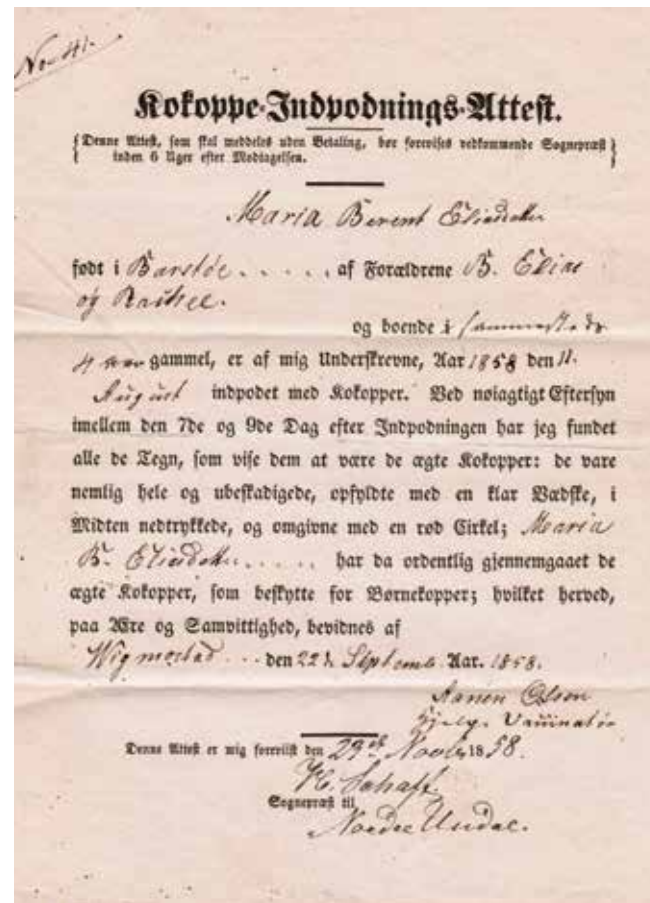 No 41.
Kokoppe-Indpodnings-Attest.
Denne Attest, som skal meddeles uden Betaling, bør forevises vedkommende Sognepræst
inden 6 Uger efter Modtagelsen.
Maria Berent Eliasdatter
født i Barstöe af Forældrene B. Elias
og Rachel.
og boende i sammesteds
4 aar gammel, er af mig Underskrevne, Aar 1858 den 11.
August indpodet med Kokopper. Ved nøiagtigt Eftersyn
imellem den 7de og 9de Dag efter Indpodningen har jeg fundet
alle de Tegn, som vise dem at være de ægte Kokopper: de vare
nemlig hele og ubeskadigede, opfyldte med en klar Vædske, i
Midten nedtrykkede, og omgivne med en rød Cirkel; Maria
B. Eliasdatter har da ordentlig gjennemgaaet de
ægte Kokopper, som beskytte for Børnekopper; hvilket herved,
paa Ære og Samvittighed, bevidnes af
Wigmostad den 22d Septemb. Aar. 1858.
Aanen Olsen
Hjelpe Vaccinatör
Denne Attest er mig foreviist den 29de Novbr 1858.
Sognepræst til
Nordre Undal.